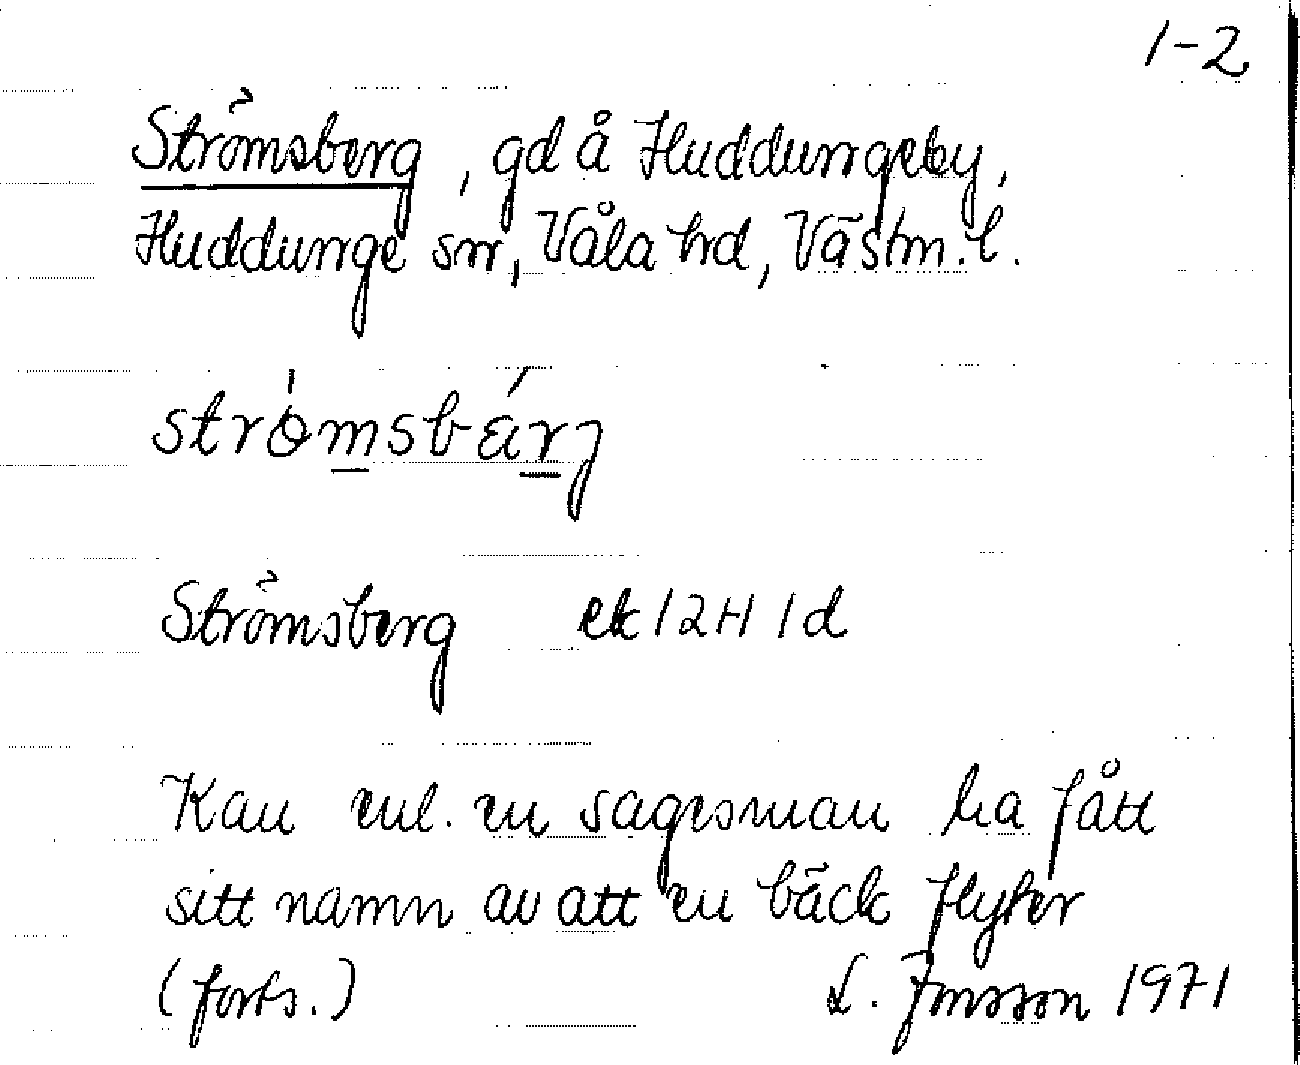 1-2
Strömsberg, gd å Huddungeby,
Huddunge sn, Våla hd, Västm.l.
strömsbärj
Strömsberg ek 12H 1d
Kan enl. en sagesman ha fått
sitt namn av att en bäck flyter
(forts.) L. Jonsson 1971